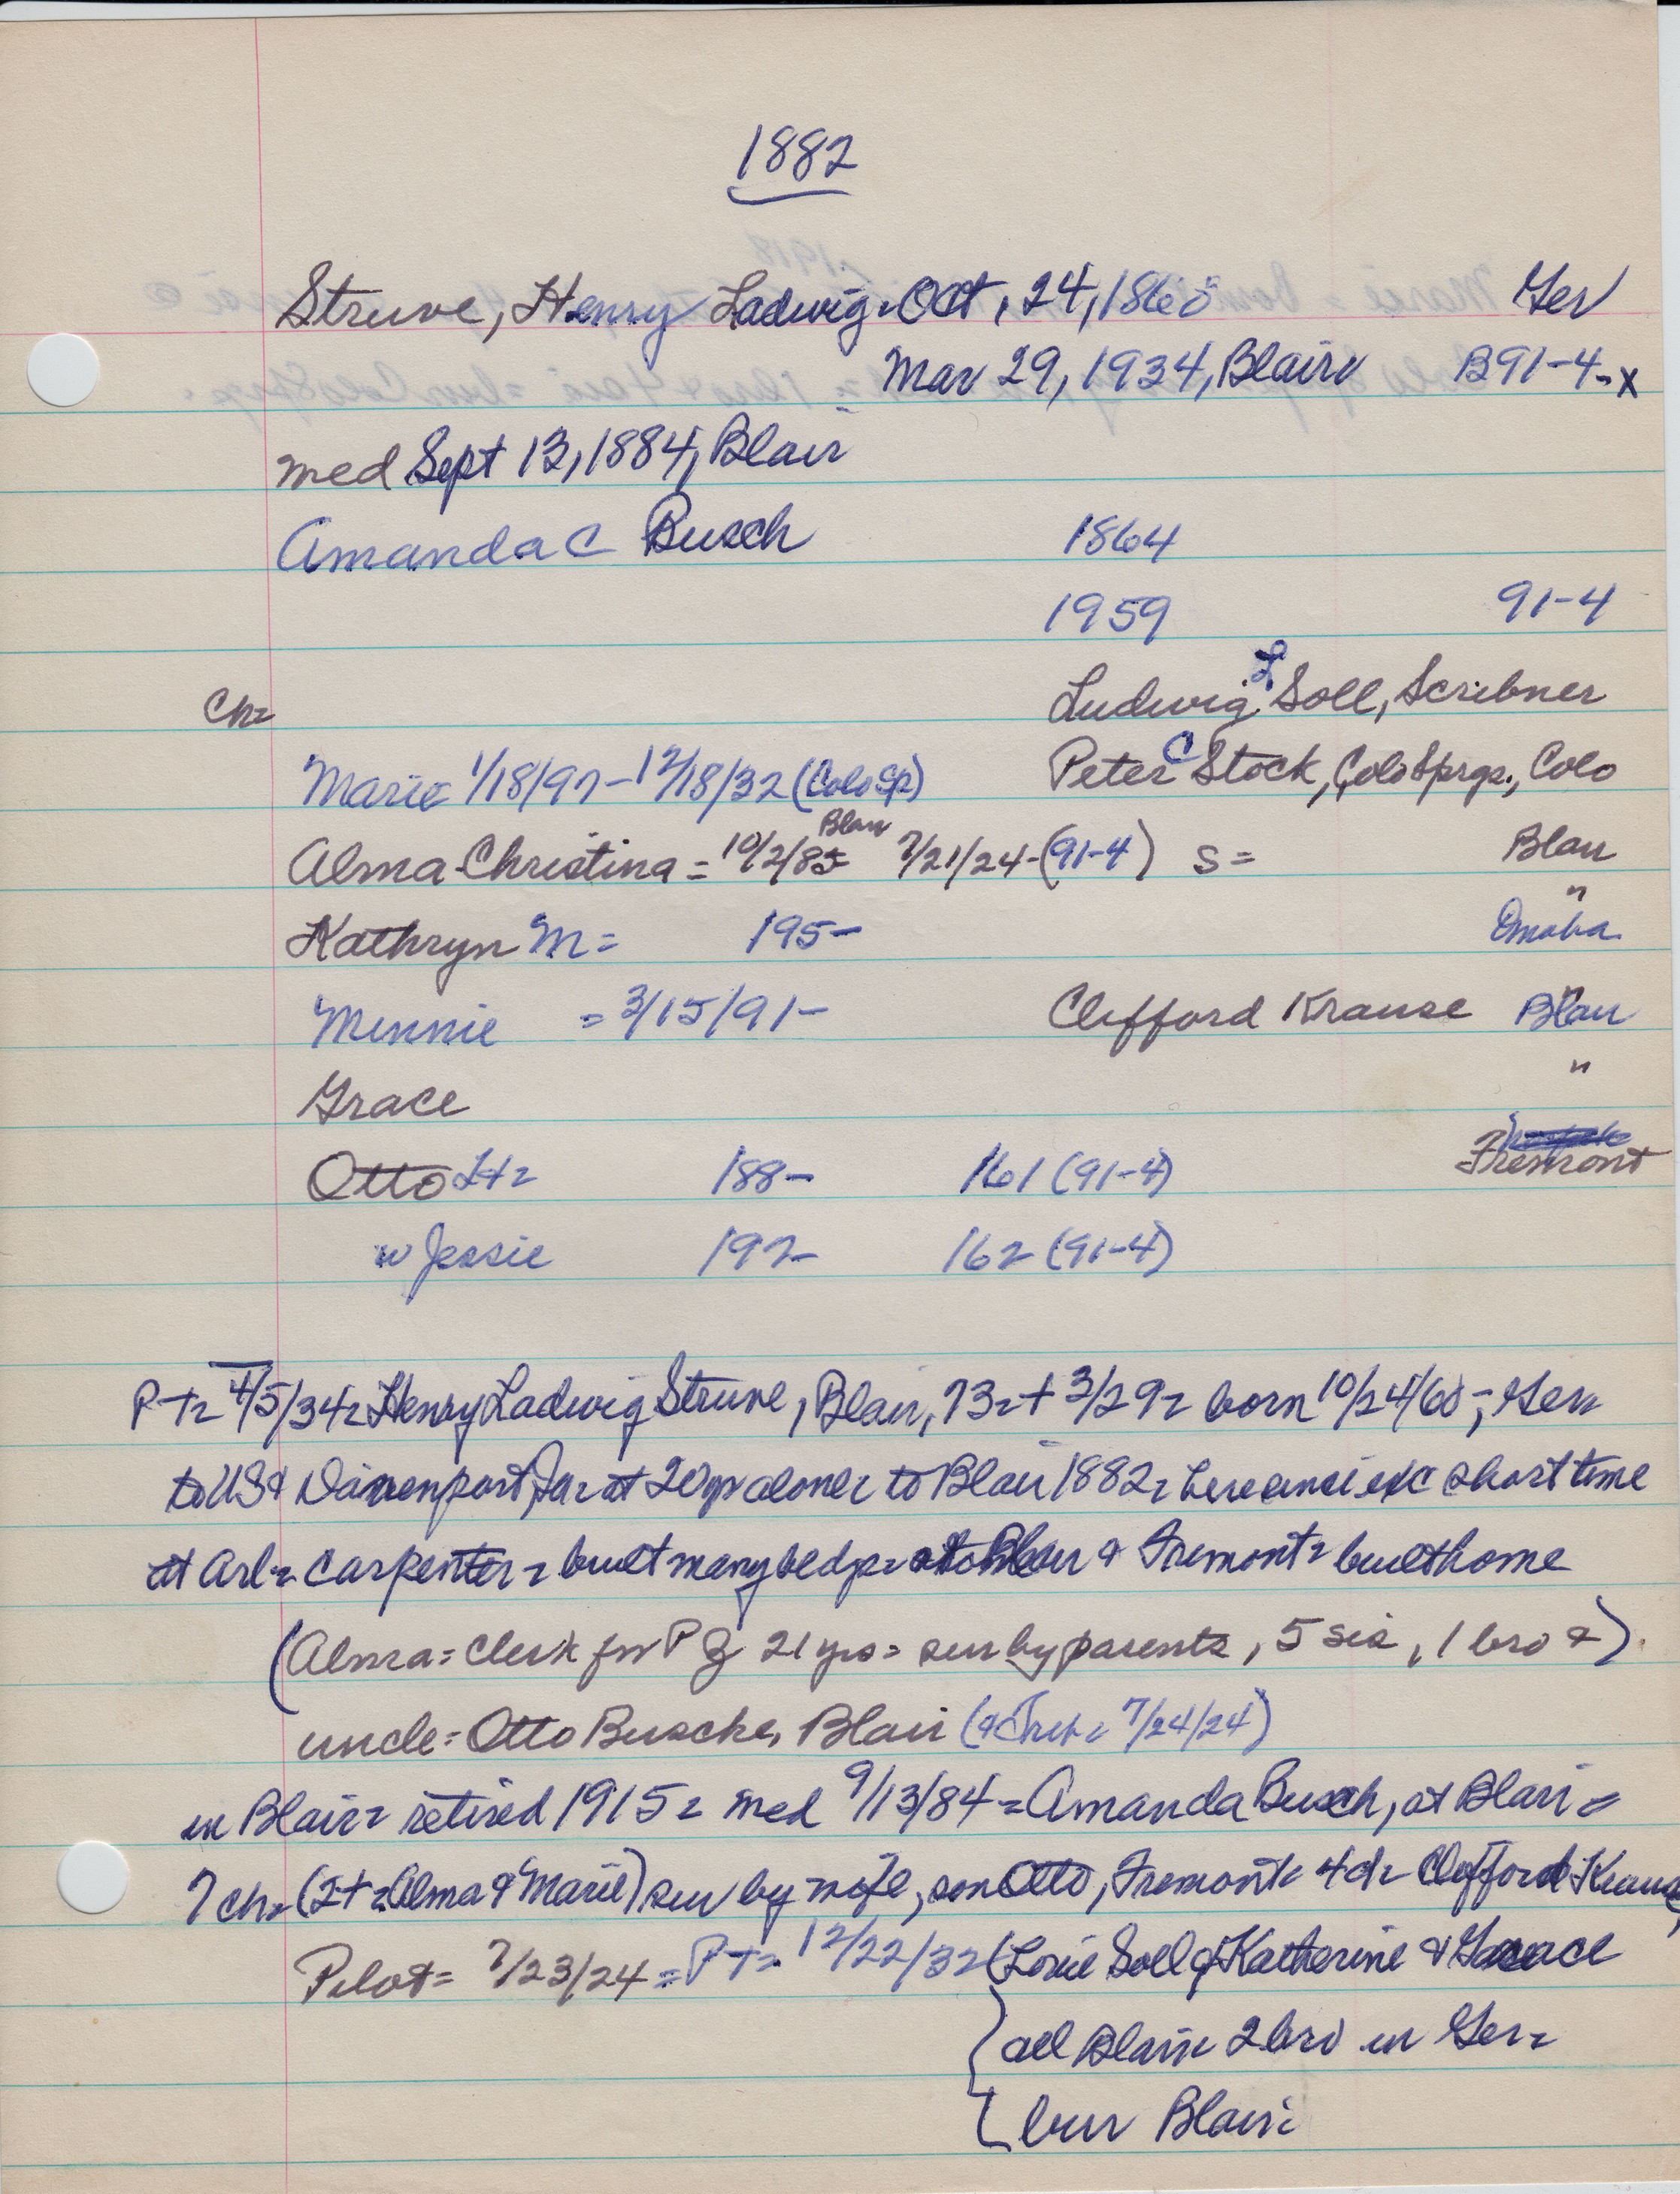 1882
Struve, Henry Ladwig - Oct, 24, 1860 Ger
Mar 29, 1934, Blair B91-4-x
med Sept 13, 1884, Blair
Amanda C Busch 1864
1959 91-4
Ch= Ludwig L Soll, Scribner
Marie 1/18/97-12/18/32 (Colo Sp) Peter C Stock, Colo Sprgs., Colo
Alma Christina = 10/2/85 Blair 7/21/24-(91-4) S= Blair
"
Kathryn M= 195- Omaha
Minnie =3/15/91- Clifford Krause " Blair
Grace "
Otto H= 188- 161 (91-4) Fremont
w Jessie 192- 162 (91-4)
P-T= 4/5/34= Henry Ladwig Struve, Blair, 73=+ 3/29= born 10/24/60-, Ger=
to US & Davenport, Ia= at 20 yrs alone= to Blair 1882= here since exc short time
at Arl= carpenter= built many bldgs= Blair & Fremont= built home
(Alma= clerk for P 21 yrs= sur by parents, 5 sis, 1 bro &)
uncle= Otto Busche, Blair ( 7/24/24)
in Blair= retired 1915= med 9/13/84= Amanda Busch, at Blair=
7 ch= (2+= Alma & Marie) sur by wife, son Otto, Fremont= 4 d= Clifford Krause,
Pilot= 7/23/24= P-T= 12/22/32 ( Soll & Katherine & Grace
all Blair 2 bro in Ger=
bur Blair